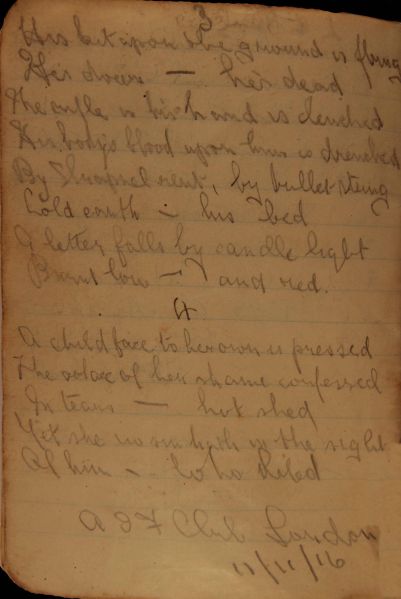 3
His hat upon the ground is flung
He's down — he's dead
The rifle in his hand is clenched
His body's blood upon him is drenched
By Shrapnel rent, by bullet stung
Cold earth - his bed
A letter falls by candle light
Burnt low — and red.
4
A child face to her own is pressed
The of her shame confessed
In tears — hot shed
Yet she no sin hath in the sight
Of him - who died
A I F Club London
11/11/16